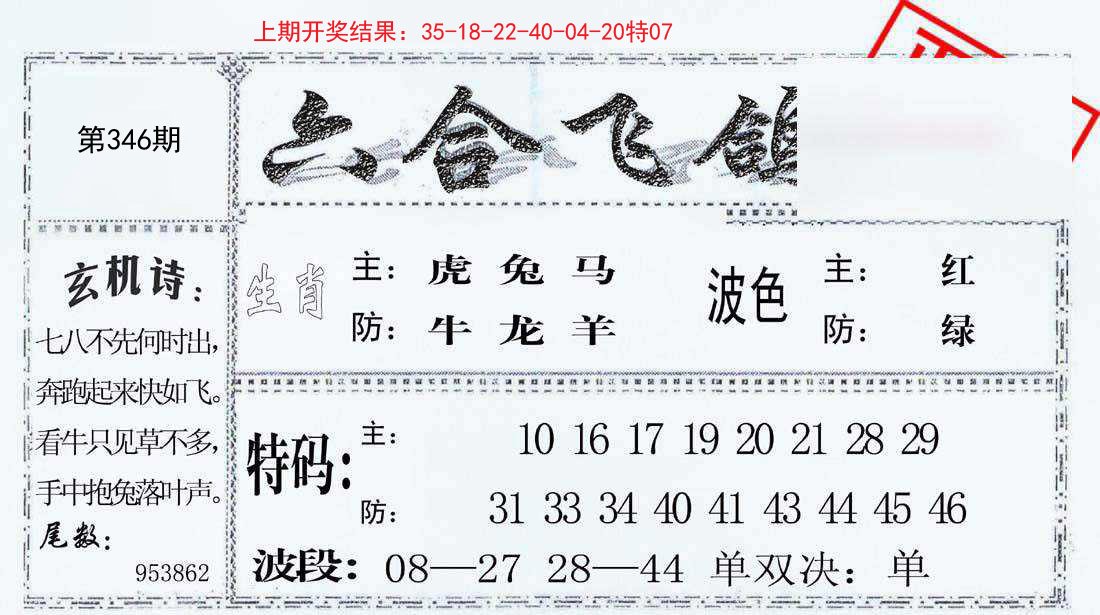 上期开奖结果：35-18-22-40-04-20特07
第346期
六合飞鸽
玄机诗：
七八不先何时出，
奔跑起来快如飞。
看牛只见草不多，
手中抱兔落叶声。
尾数：
953862
生肖
主：虎 兔 马
防：牛 龙 羊
波色
主：红
防：绿
特码：
主：10 16 17 19 20 21 28 29
防：31 33 34 40 41 43 44 45 46
波段：08—27 28—44 单双决：单